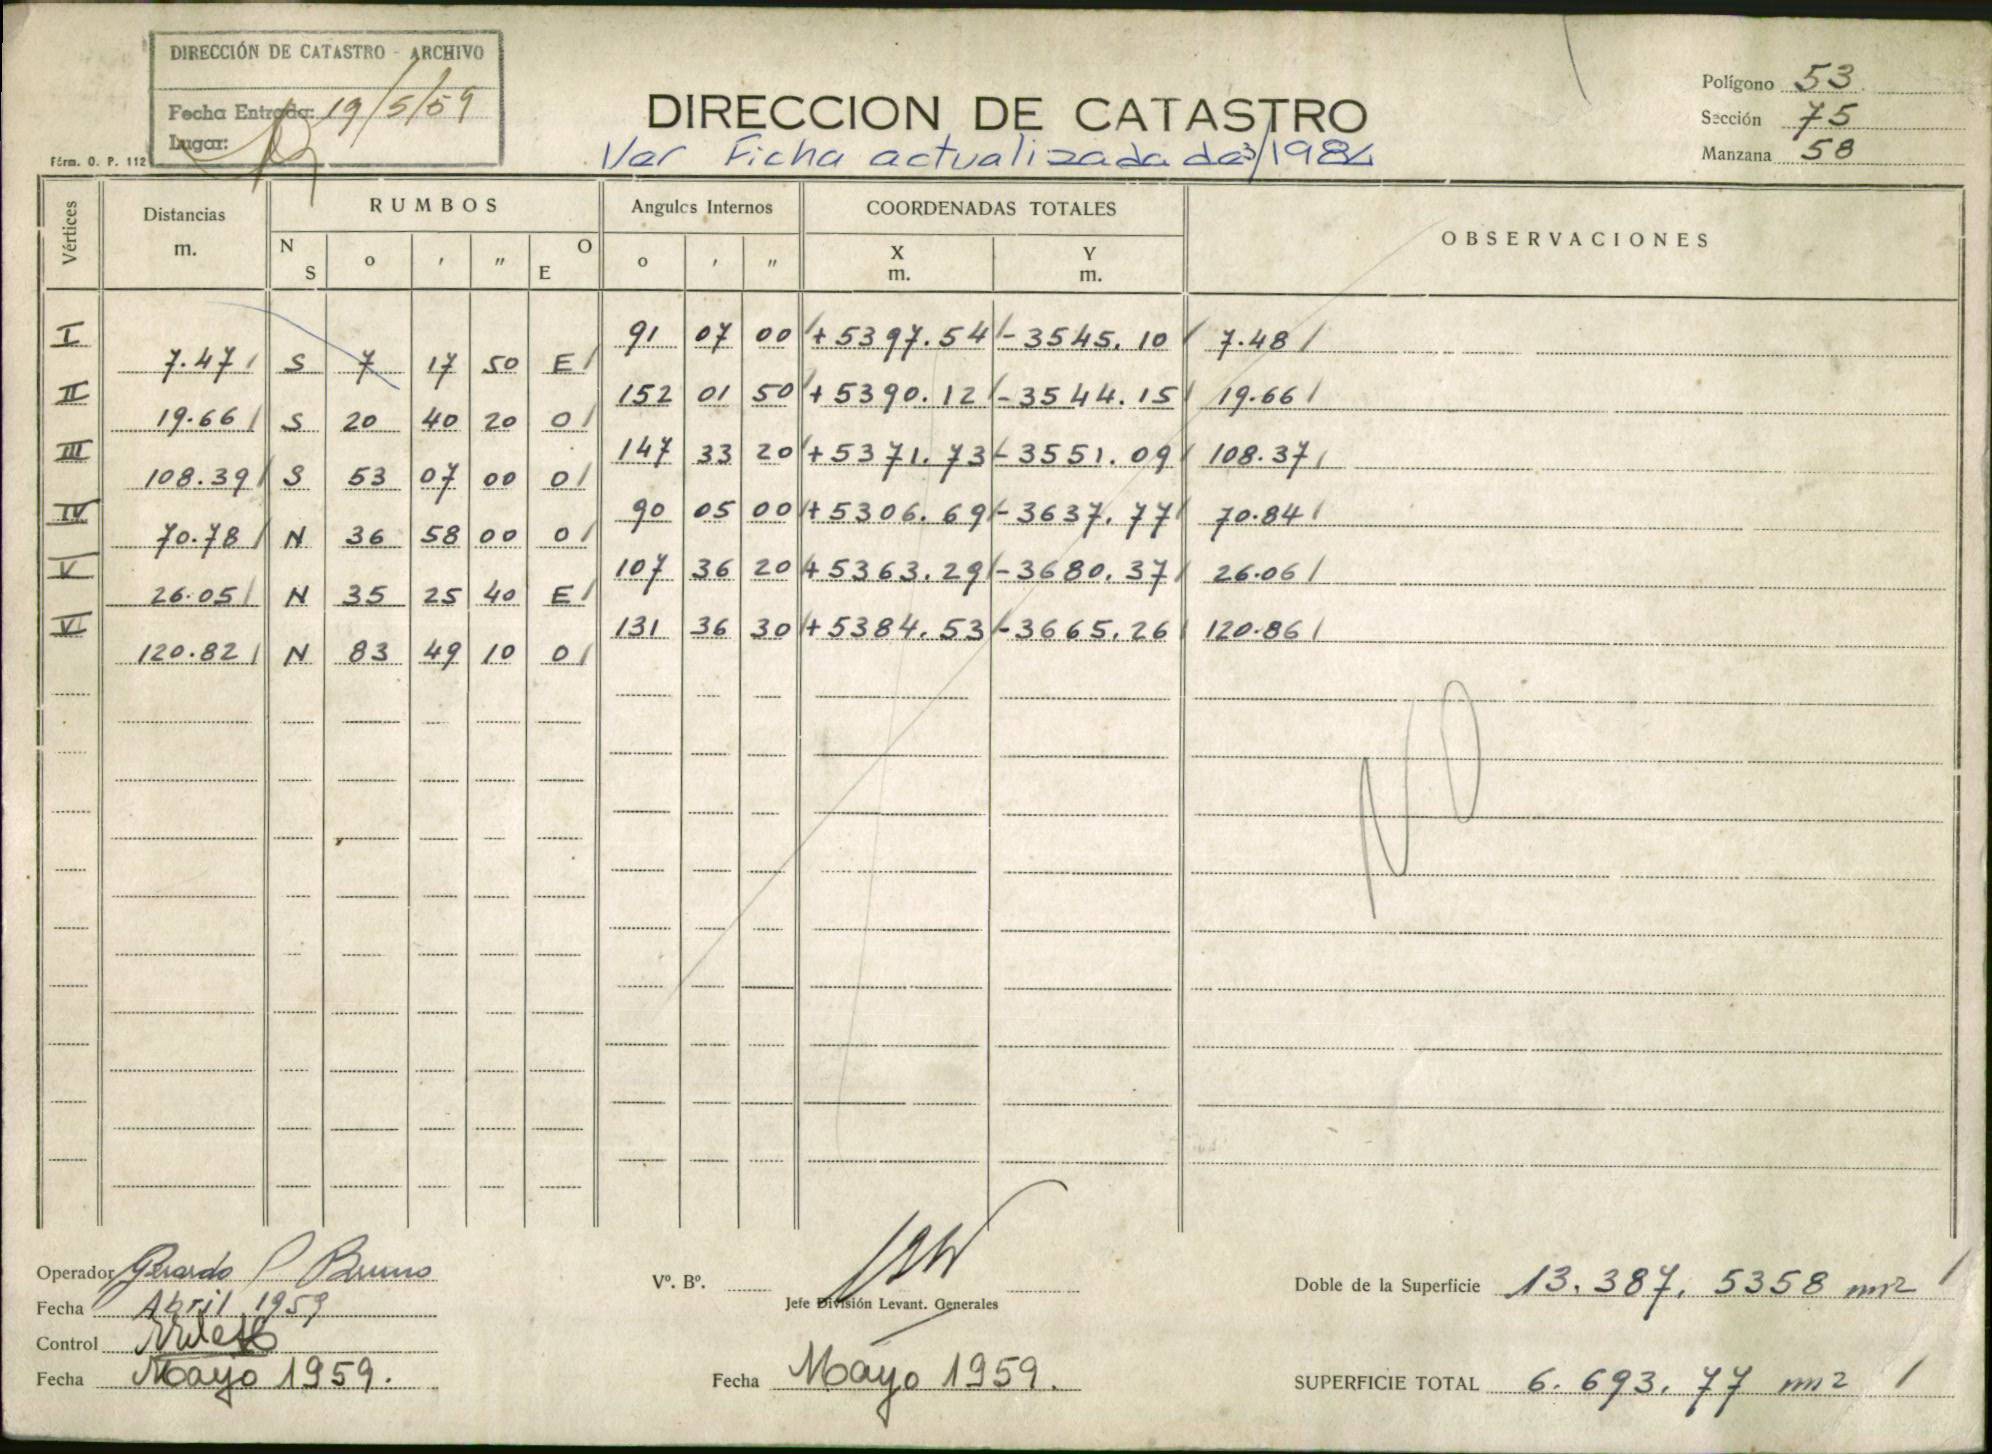 DIRECCIÓN DE CATASTRO - ARCHIVO
Fecha Entrada: 19/5/59
Lugar:
Fórm. O. P. 112
DIRECCION DE CATASTRO
Ver Ficha actualizada de 3/1984
Polígono 53
Sección 75
Manzana 58
Vértices Distancias m. RUMBOS Angulos Internos COORDENADAS TOTALES OBSERVACIONES
N S o ' " O E o ' " X m. Y m.
I 91 07 00 +5397.54 -3545.10 7.48
7.47 S 7 17 50 E
II 152 01 50 +5390.12 -3544.15 19.66
19.66 S 20 40 20 O
III 147 33 20 +5371.73 -3551.09 108.37
108.39 S 53 07 00 O
IV 90 05 00 +5306.69 -3637.77 70.84
70.78 N 36 58 00 O
V 107 36 20 +5363.29 -3680.37 26.06
26.05 N 35 25 40 E
VI 131 36 30 +5384.53 -3665.26 120.86
120.82 N 83 49 10 O
NO
Operador Gerardo P Bruno
Fecha Abril 1959
Control
Fecha Mayo 1959.
Vº. Bº.
Jefe División Levant. Generales
Fecha Mayo 1959.
Doble de la Superficie 13.387,5358 m2
SUPERFICIE TOTAL 6.693,77 m2